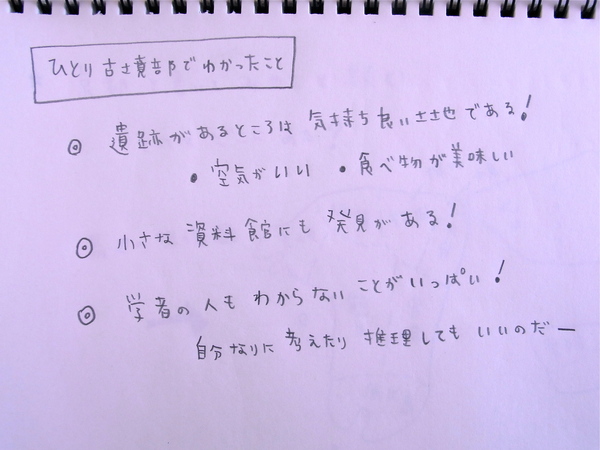 ひとり古墳部でわかったこと
◎ 遺跡があるところは 気持ち良い土地である!
・空気がいい ・食べ物が美味しい
◎ 小さな資料館にも発見がある!
◎ 学者の人もわからないことがいっぱい!
自分なりに考えたり推理してもいいのだー